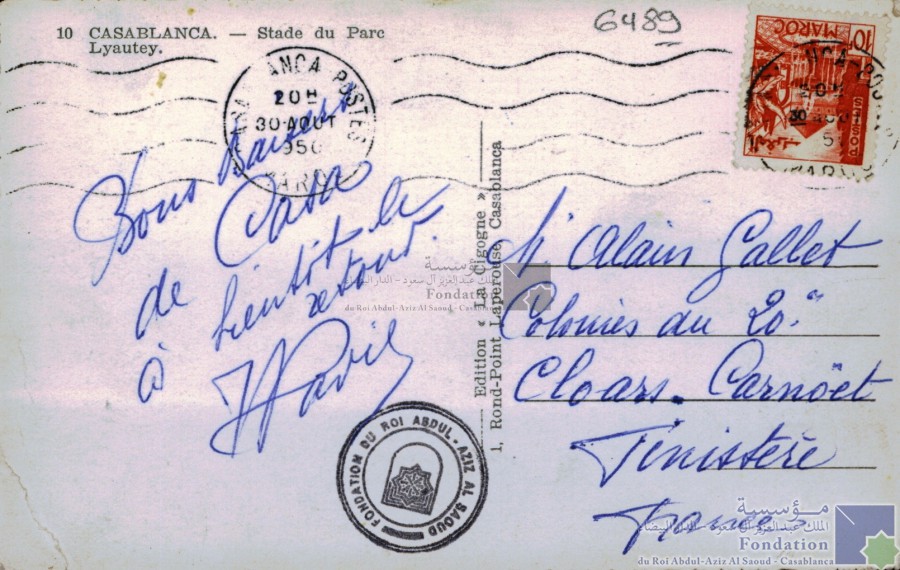 10 CASABLANCA. — Stade du Parc
Lyautey.
6489
CASABLANCA POSTES
20H
30 AOUT
950
MAROC
MAROC
10F
Bons Baisers
de Casa
à bientôt le
retour.
Edition « La Cigogne »
1, Rond-Point Laperouse, Casablanca
Mr Alain Gallet
Colonies du 20e
Cloars. Carnoët
Finistère
France
FONDATION DU ROI ABDUL-AZIZ AL SAOUD
مؤسسة
الملك عبد العزيز آل سعود - الدار البيضاء
Fondation
du Roi Abdul-Aziz Al Saoud - Casablanca
مؤسسة
الملك عبد العزيز آل سعود - الدار البيضاء
Fondation
du Roi Abdul-Aziz Al Saoud - Casablanca